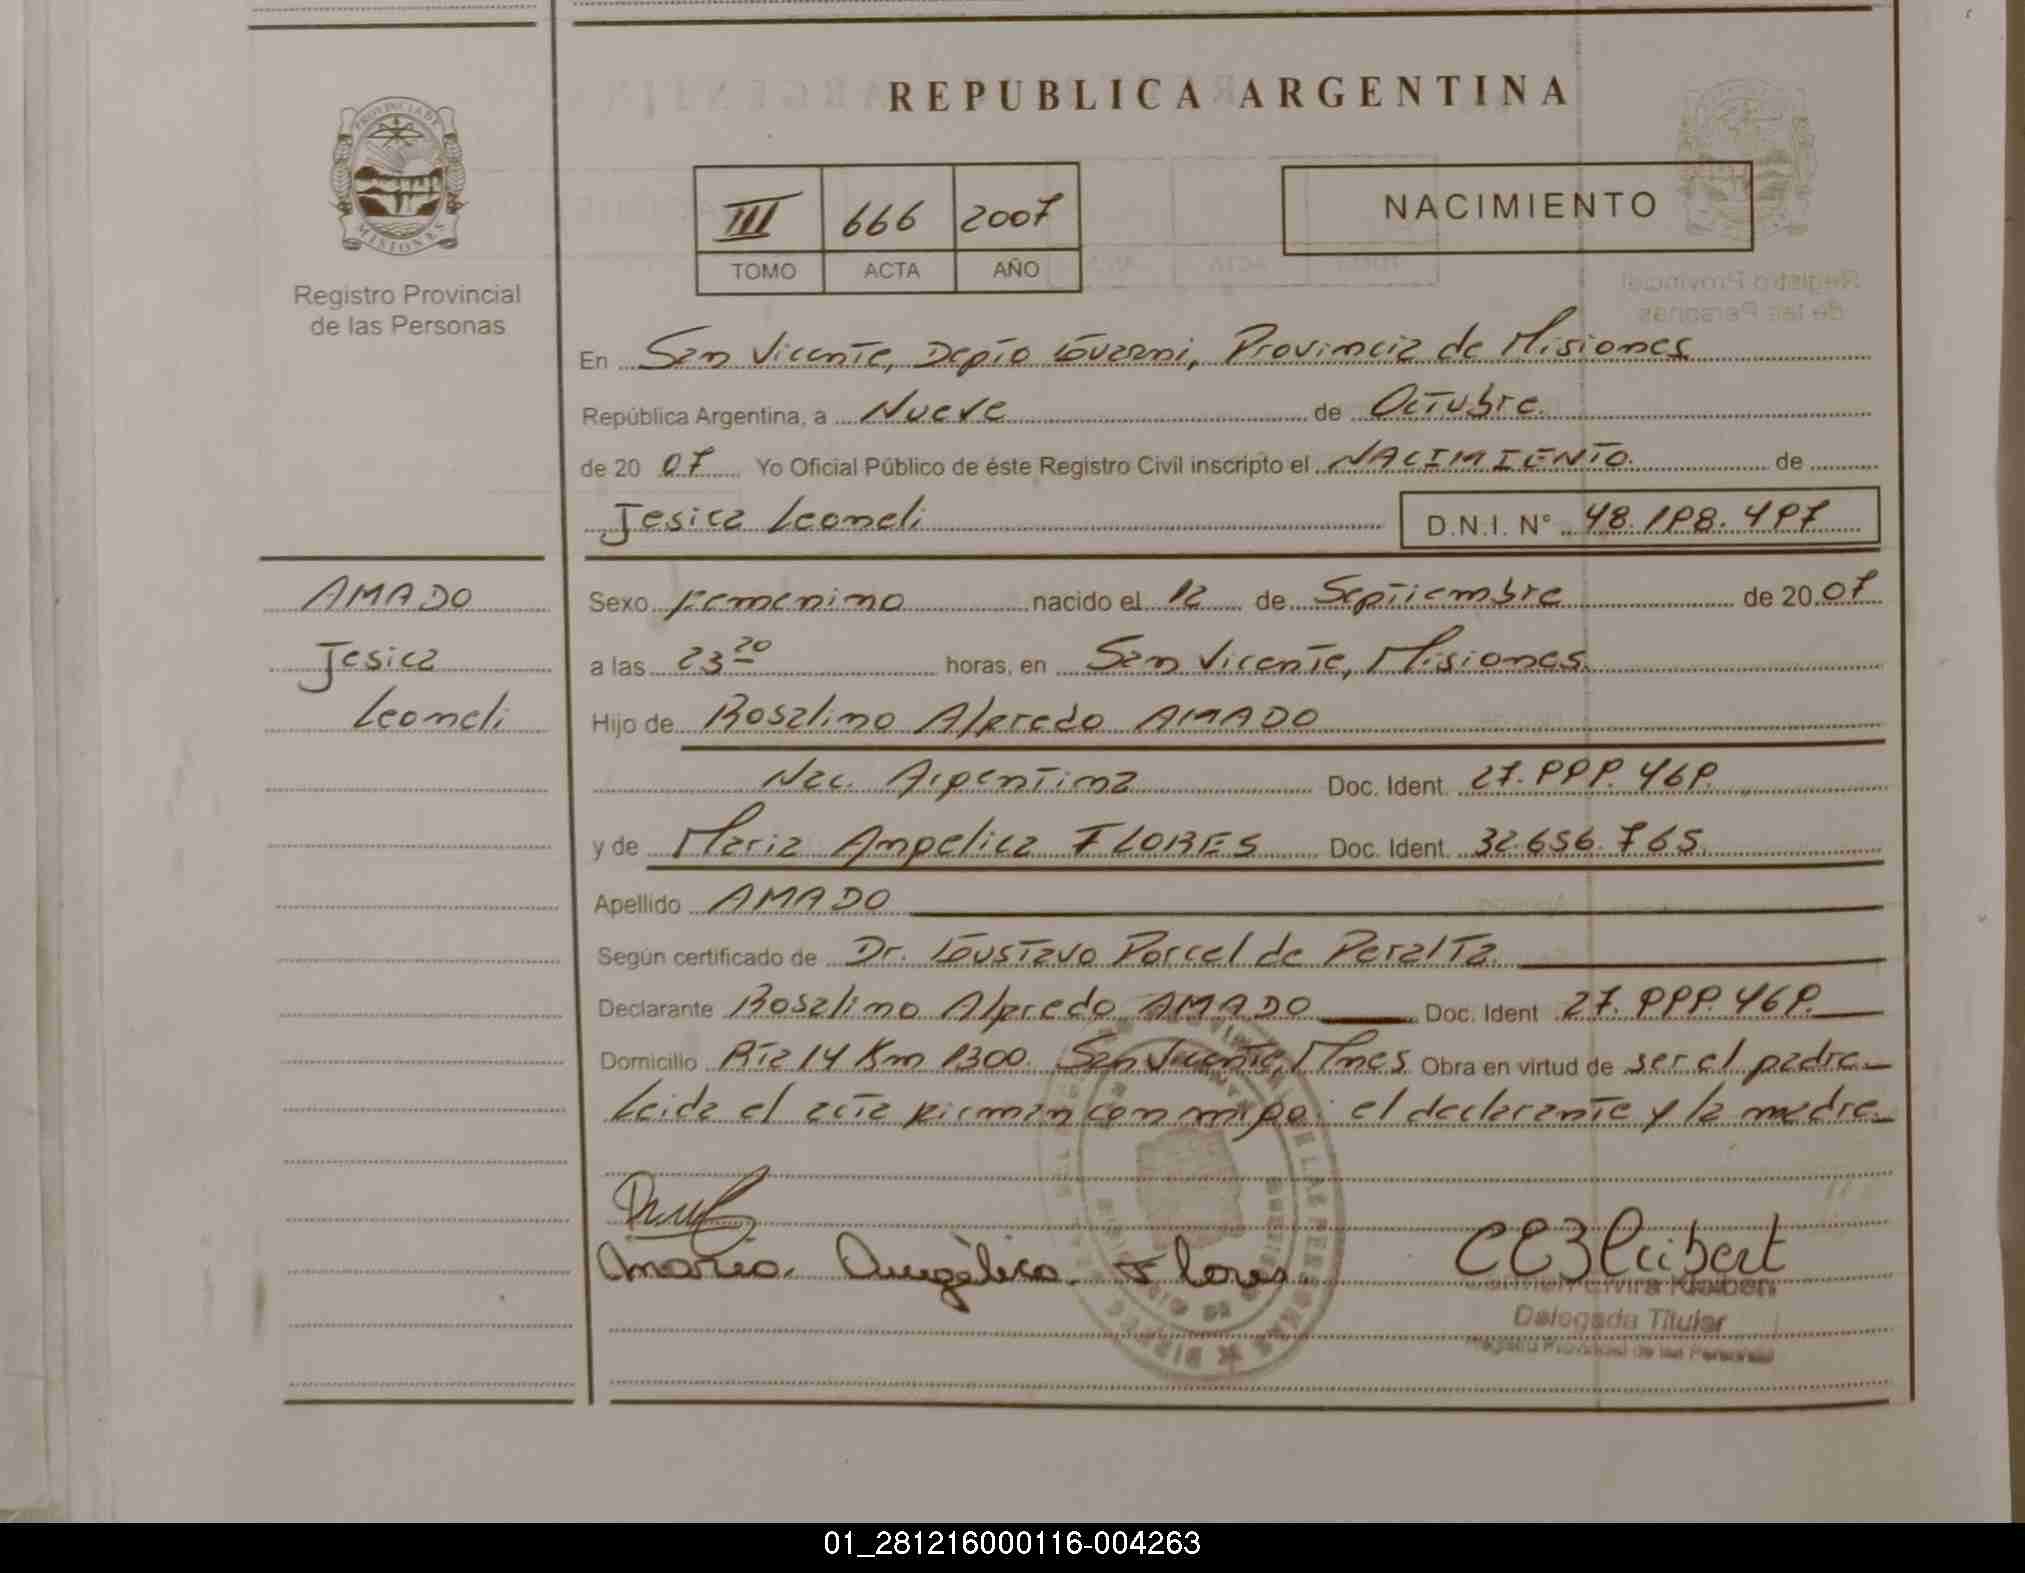 REPUBLICA ARGENTINA
PROVINCIA DE MISIONES
Registro Provincial
de las Personas
III 666 2007
TOMO ACTA AÑO
NACIMIENTO
En San Vicente, Depto Guarani, Provincia de Misiones
República Argentina, a Nueve de Octubre
de 2007 Yo Oficial Público de éste Registro Civil inscripto el NACIMIENTO de
Jesica Leoneli D.N.I. N° 48.198.497
AMADO
Jesica
Leoneli
Sexo Femenino nacido el 12 de Septiembre de 2007
a las 23 20 horas, en San Vicente, Misiones
Hijo de Rosalino Alfredo AMADO
Nac. Argentina Doc. Ident. 27.999.469.
y de Maria Angelica FLORES Doc. Ident. 32.656.765.
Apellido AMADO
Según certificado de Dr. Gustavo Porcel de Peralta
Declarante Rosalino Alfredo AMADO Doc. Ident 27.999.469.
Domicilio Rta 14 Km 1300. San Vicente, Mnes Obra en virtud de ser el padre
Leida el acta firman conmigo: el declarante y la madre
Maria Angélica Flores
CE Kleibert
Carmen Elvira Kleibert
Delegada Titular
Registro Provincial de las Personas
01_281216000116-004263